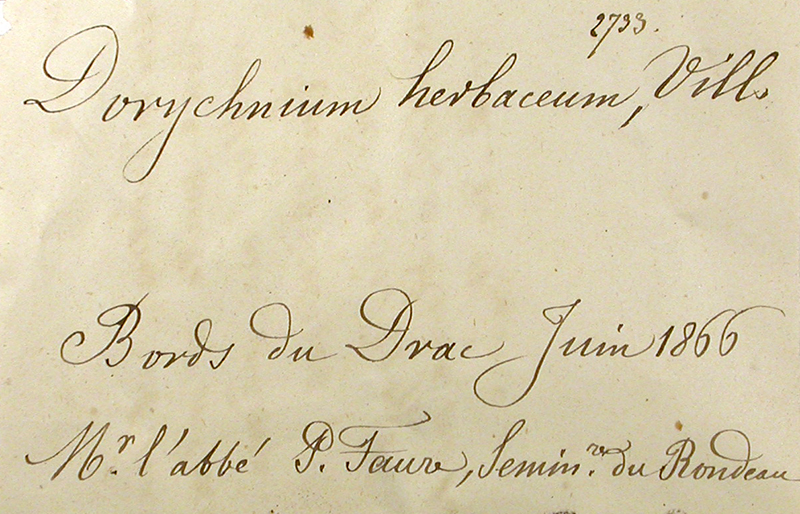 2733.
Dorychnium herbaceum, Vill.
Bords du Drac Juin 1866
Mr. l'abbé P. Faure, Seminre. du Rondeau